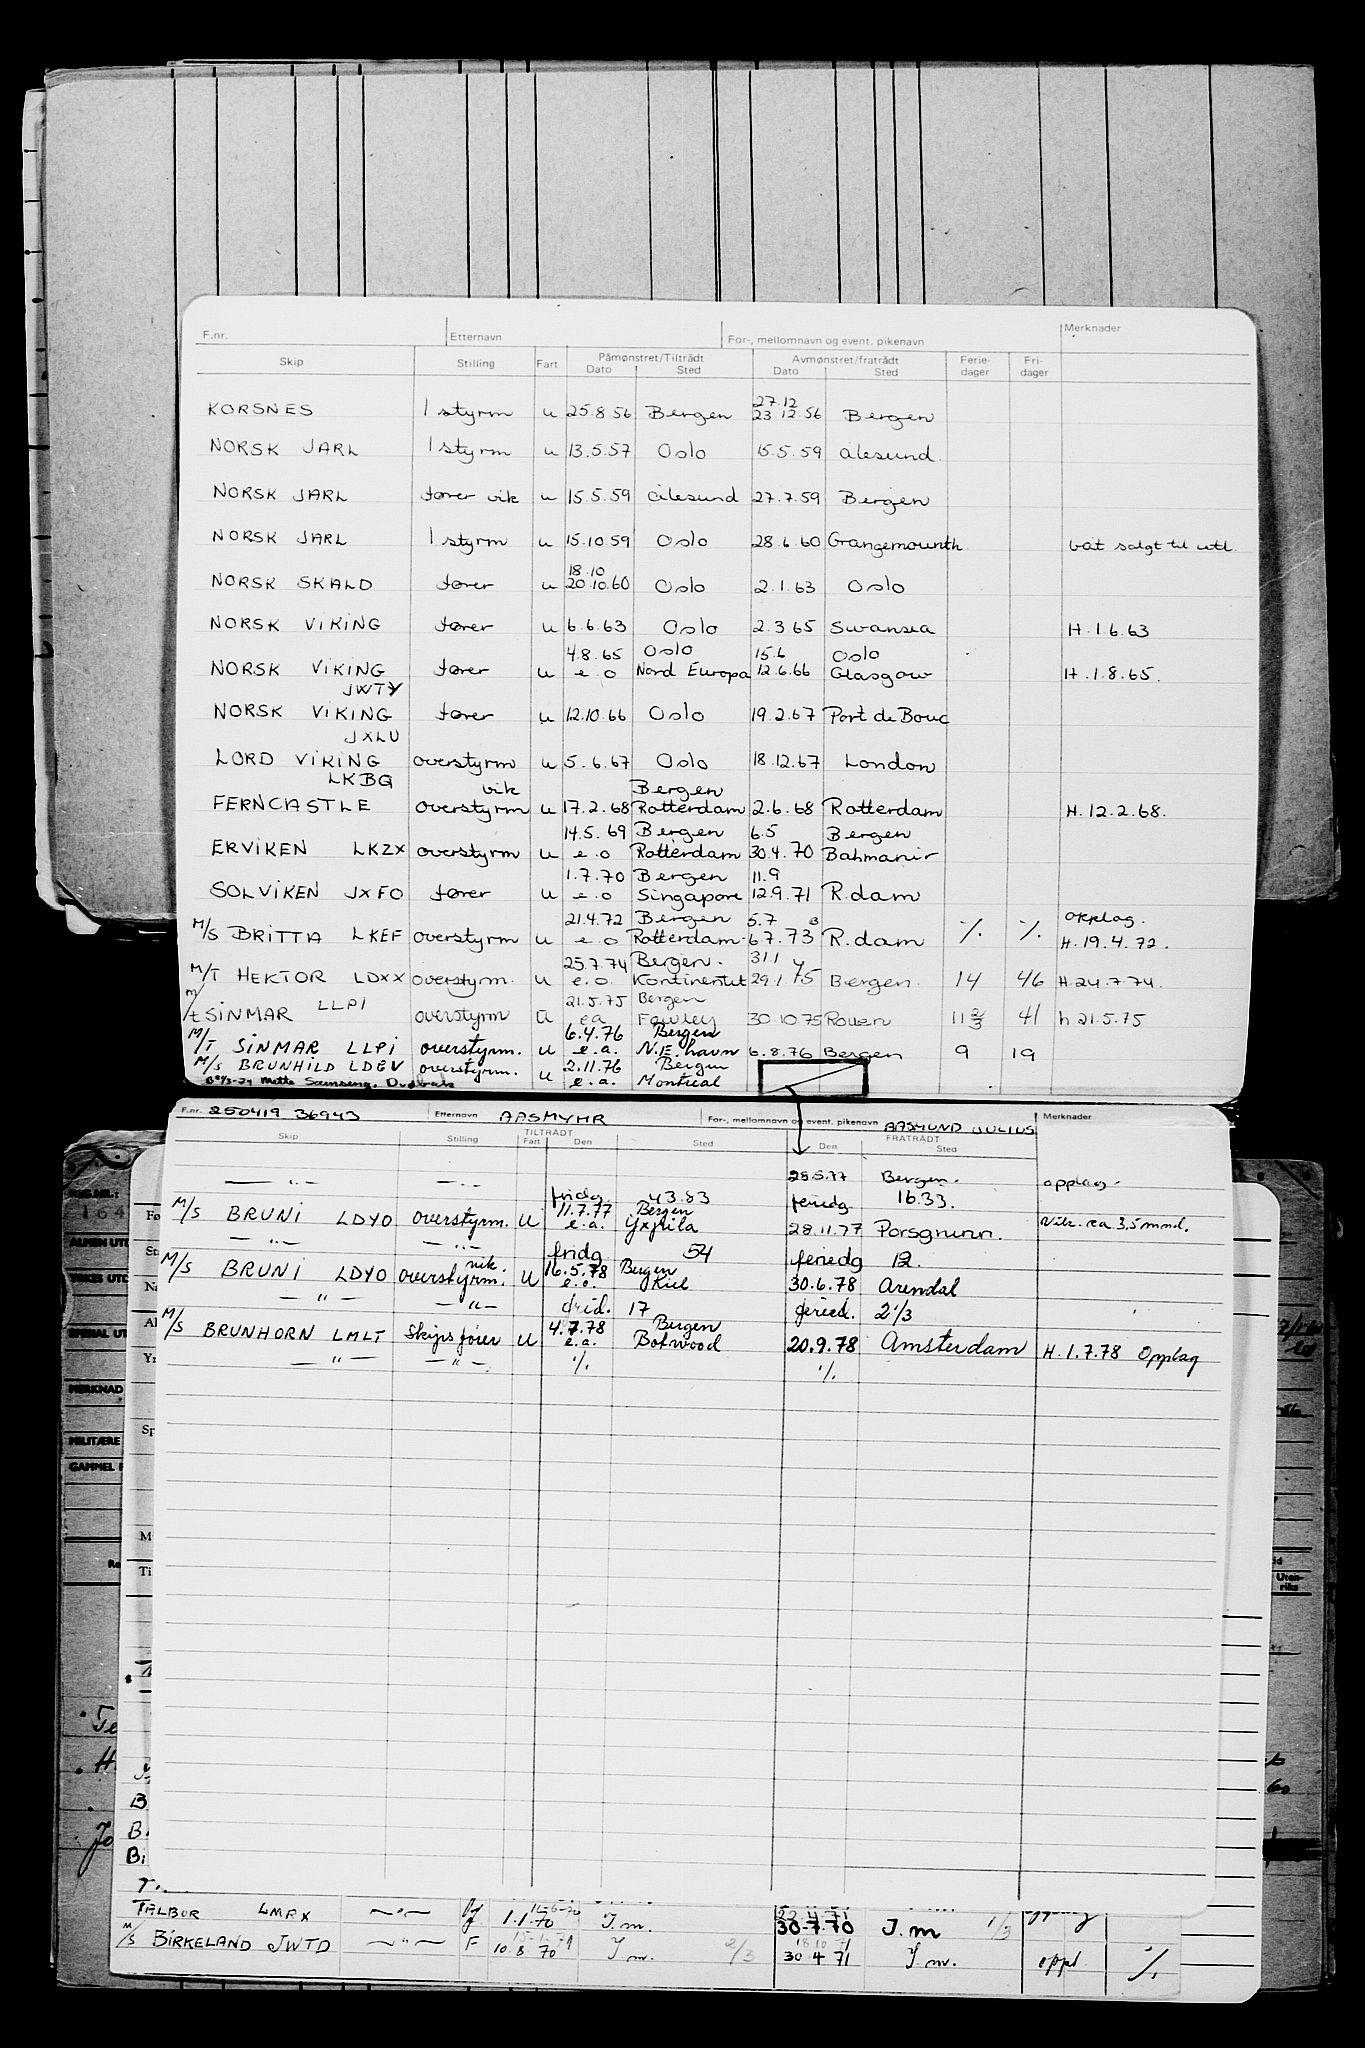 F.nr. Etternavn For-, mellomnavn og event. pikenavn Merknader
Skip Stilling Fart Påmønstret/Tiltrådt Avmønstret/fratrådt Ferie- Fri-
Dato Sted Dato Sted dager dager
27.12
KORSNES 1 styrm u 25.8.56 Bergen 23.12.56 Bergen
NORSK JARL 1 styrm u 13.5.57 Oslo 15.5.59 ålesund
NORSK JARL fører vik u 15.5.59 ålesund 27.7.59 Bergen
NORSK JARL 1 styrm u 15.10.59 Oslo 28.6.60 Grangemounth båt solgt til utl.
18.10
NORSK SKALD fører u 20.10.60 Oslo 2.1.63 Oslo
NORSK VIKING fører u 6.6.63 Oslo 2.3.65 Swansea H.1.6.63
4.8.65 Oslo 15.6 Oslo
NORSK VIKING fører u e.o Nord Europa 12.6.66 Glasgow H.1.8.65.
JWTY
NORSK VIKING fører u 12.10.66 Oslo 19.2.67 Port de Bouc
JXLU
LORD VIKING overstyrm u 5.6.67 Oslo 18.12.67 London
LKBQ vik Bergen
FERNCASTLE overstyrm u 17.2.68 Rotterdam 2.6.68 Rotterdam H.12.2.68.
14.5.69 Bergen 6.5 Bergen
ERVIKEN LKZX overstyrm u e.o Rotterdam 30.4.70 Bahmanir
1.7.70 Bergen 11.9
SOLVIKEN JXFO fører u e.o Singapore 12.9.71 R.dam
21.4.72 Bergen 5.7 opplag.
M/S BRITTA LKEF overstyrm u e.o Rotterdam 6.7.73 R.dam ./. ./. H.19.4.72.
25.7.74 Bergen. 31.1
M/T HEKTOR LDXX overstyrm. u e.o. Kontinentet 29.1.75 Bergen. 14 46 H.24.7.74.
21.5.75 Bergen
M/t SINMAR LLPI overstyrm u ea Fawley 30.10.75 Rouen 11 2/3 41 h 21.5.75
6.4.76 Bergen
M/T SINMAR LLPI overstyrm. u e.a. N.E.havn 6.8.76 Bergen 9 19
2.11.76 Bergen
M/S BRUNHILD LDEV overstyrm. u e.a. Montreal
F.nr. 250419 36943 Etternavn AASMYHR For-, mellomnavn og event. pikenavn AASMUND JULIUS Merknader
Skip Stilling TILTRÅDT Fart Den Sted FRATRÅDT Den Sted
— " — — " — 28.5.77 Bergen. opplag.
fridg 43.83 feriedg 16.33.
11.7.77 Bergen
M/S BRUNI LDYO overstyrm. u e.a. Yxpila 28.11.77 Porsgrunn. Vik. ca 3,5 mnd.
— " — — " — fridg 54 feriedg 12.
vik. 16.5.78 Bergen
M/S BRUNI LDYO overstyrm. u e.o. Kiel 30.6.78 Arendal
— " — — " — frid. 17 feried. 2 1/3
4.7.78 Bergen
M/S BRUNHORN LMLT Skipsfører u e.a. Botwood 20.9.78 Amsterdam H.1.7.78 Opplag
— " — — " — ./. ./.
TALBOR LMFX — " — 1.1.70 I.m. 30.7.70 I.m 1/3
M/S BIRKELAND JWTD — " — F 10 8 70 I m. 2/3 30 4 71 I m. oppl ./.
REG.NR.:
164
MERKNAD
MILITÆRE
GAMMEL F
Uten-
riks